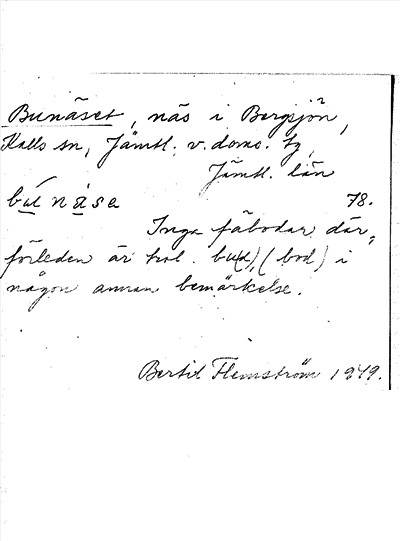 Bunäset, näs i Bergsjön,
Kalls sn, Jämtl. v. doms. tg,
Jämtl. län
búnä̀sɛ 78.
Inga fäbodar där,
förleden är trol. bu(d), (bod) i
någon annan bemärkelse.
Bertil Flemström 1949.